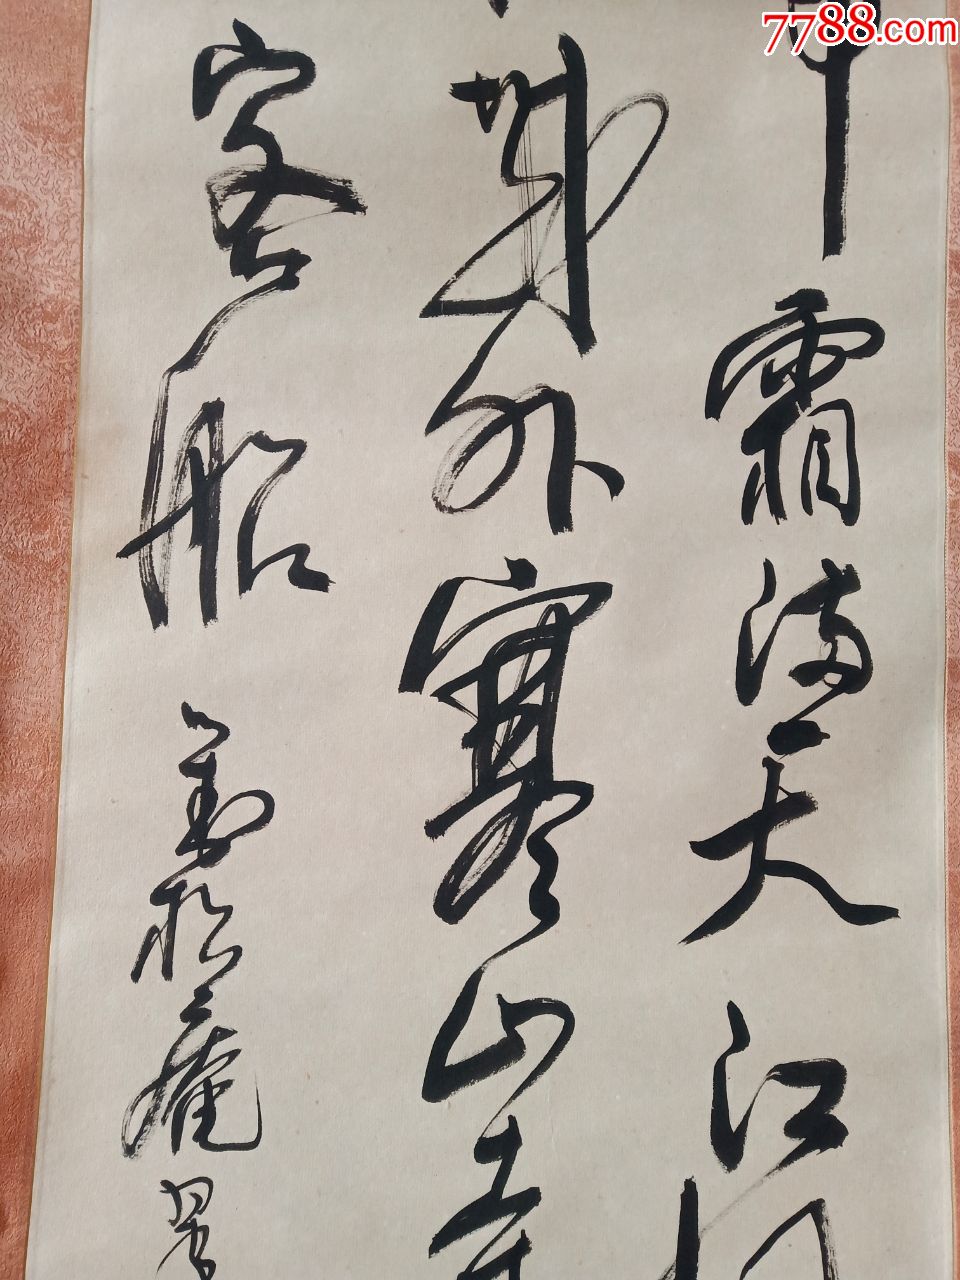 7788.com
霜满天江
城外寒山寺
客船
松庵